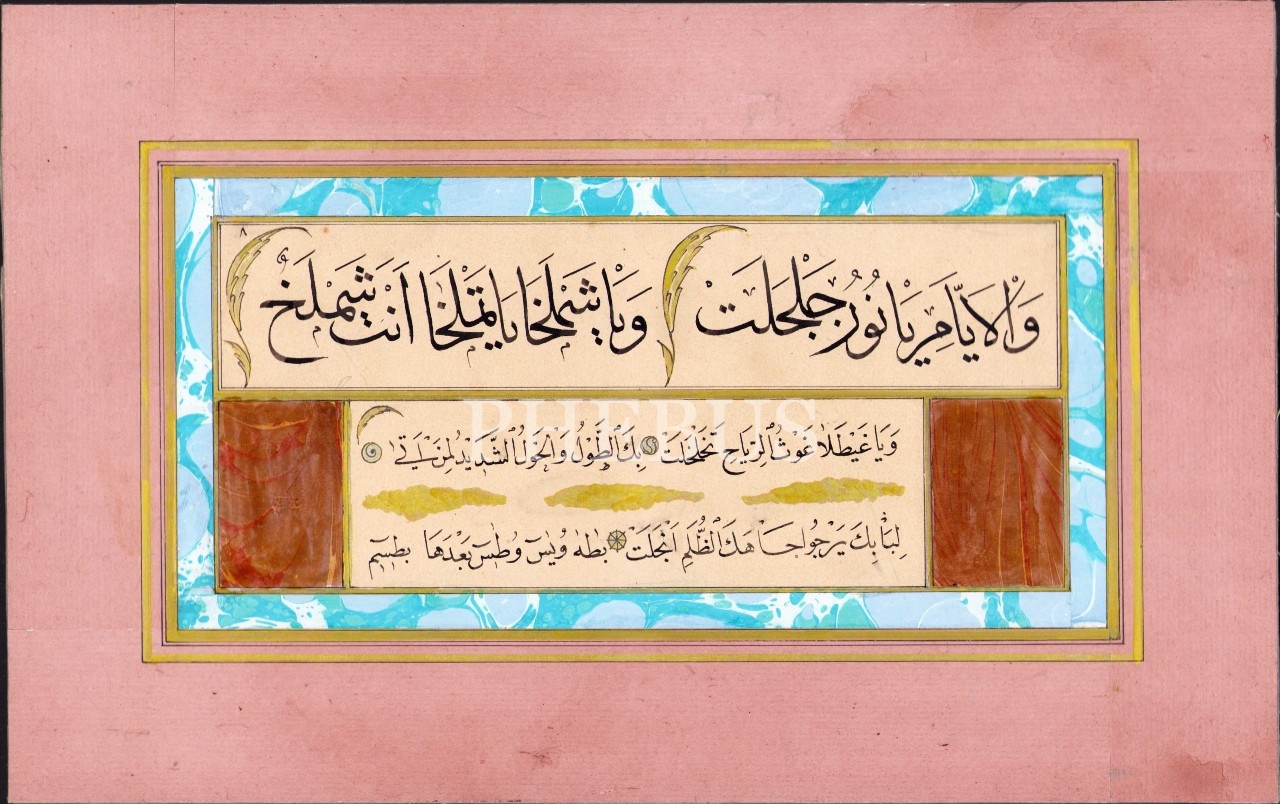 وَالْاَيَّامِ مَرِيَا نُورُ جَلْجَلَتْ وَيَا شَمْلَخَا يَا تَمْلَخَا اَنْتَ شَمْلَخْ ٨
وَيَا غَيْطَلَا غَوْثُ الرِّيَاحِ تَخَلْخَلَتْ بِكَ الطَّوْلُ وَالْحَوْلُ الشَّدِيدُ لِمَنْ اَتٰى
لِبَابِكَ يَرْجُوا جَاهَكَ الظُّلَمِ انْجَلَتْ بِطٰهٰ وَيٰسٓ وَطٰسٓ بَعْدَهَا بِطٰسٓمٓ
PHEBUS